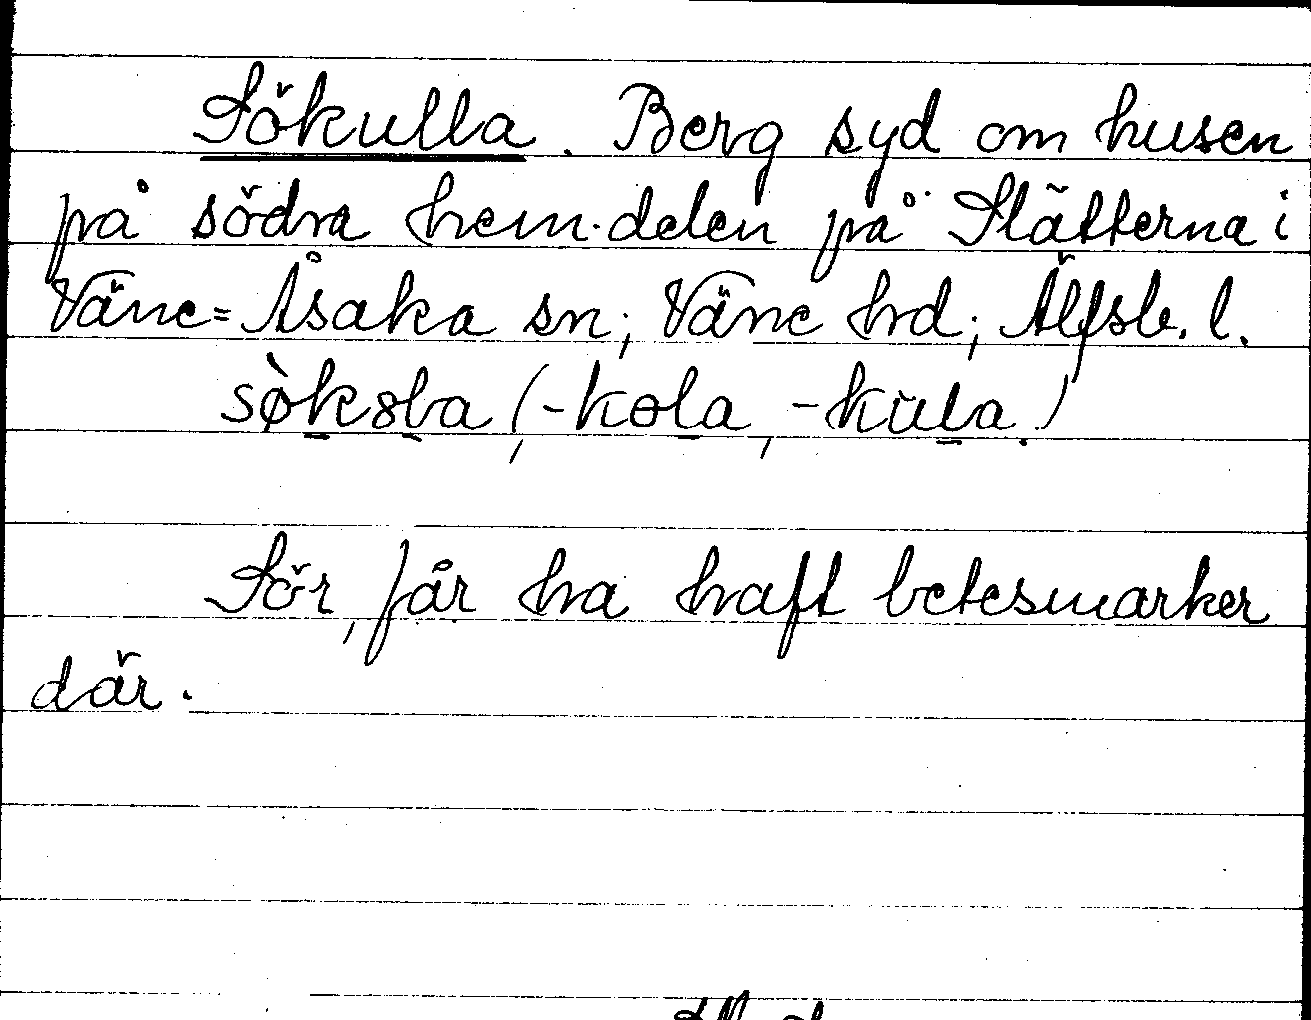 Sökulla. Berg syd om husen
på södra hem.delen på Slätterna i
Väne=Åsaka sn; Väne hd; Älfsb. l.
sø̀kꞷla (-kola, -kula.)
Sör, får ha haft betesmarker
där.